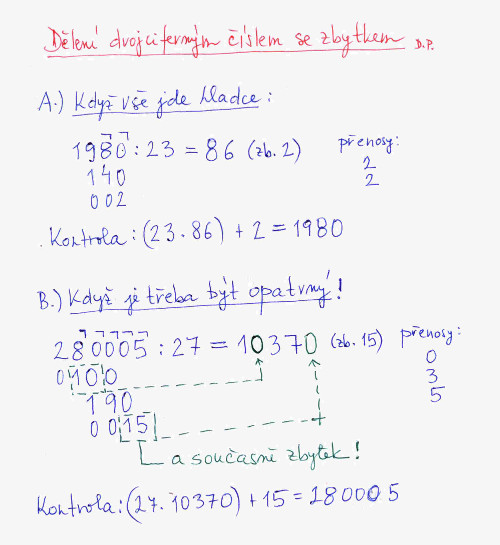 Dělení dvojciferným číslem se zbytkem D.P.
A.) Když vše jde hladce:
1980 : 23 = 86 (zb. 2) přenosy:
140 2
002 2
. Kontrola: (23 . 86) + 2 = 1980
B.) Když je třeba být opatrný!
280005 : 27 = 10370 (zb. 15) přenosy:
0100 0
190 3
0015 5
a současně zbytek!
Kontrola: (27. 10370) + 15 = 280005